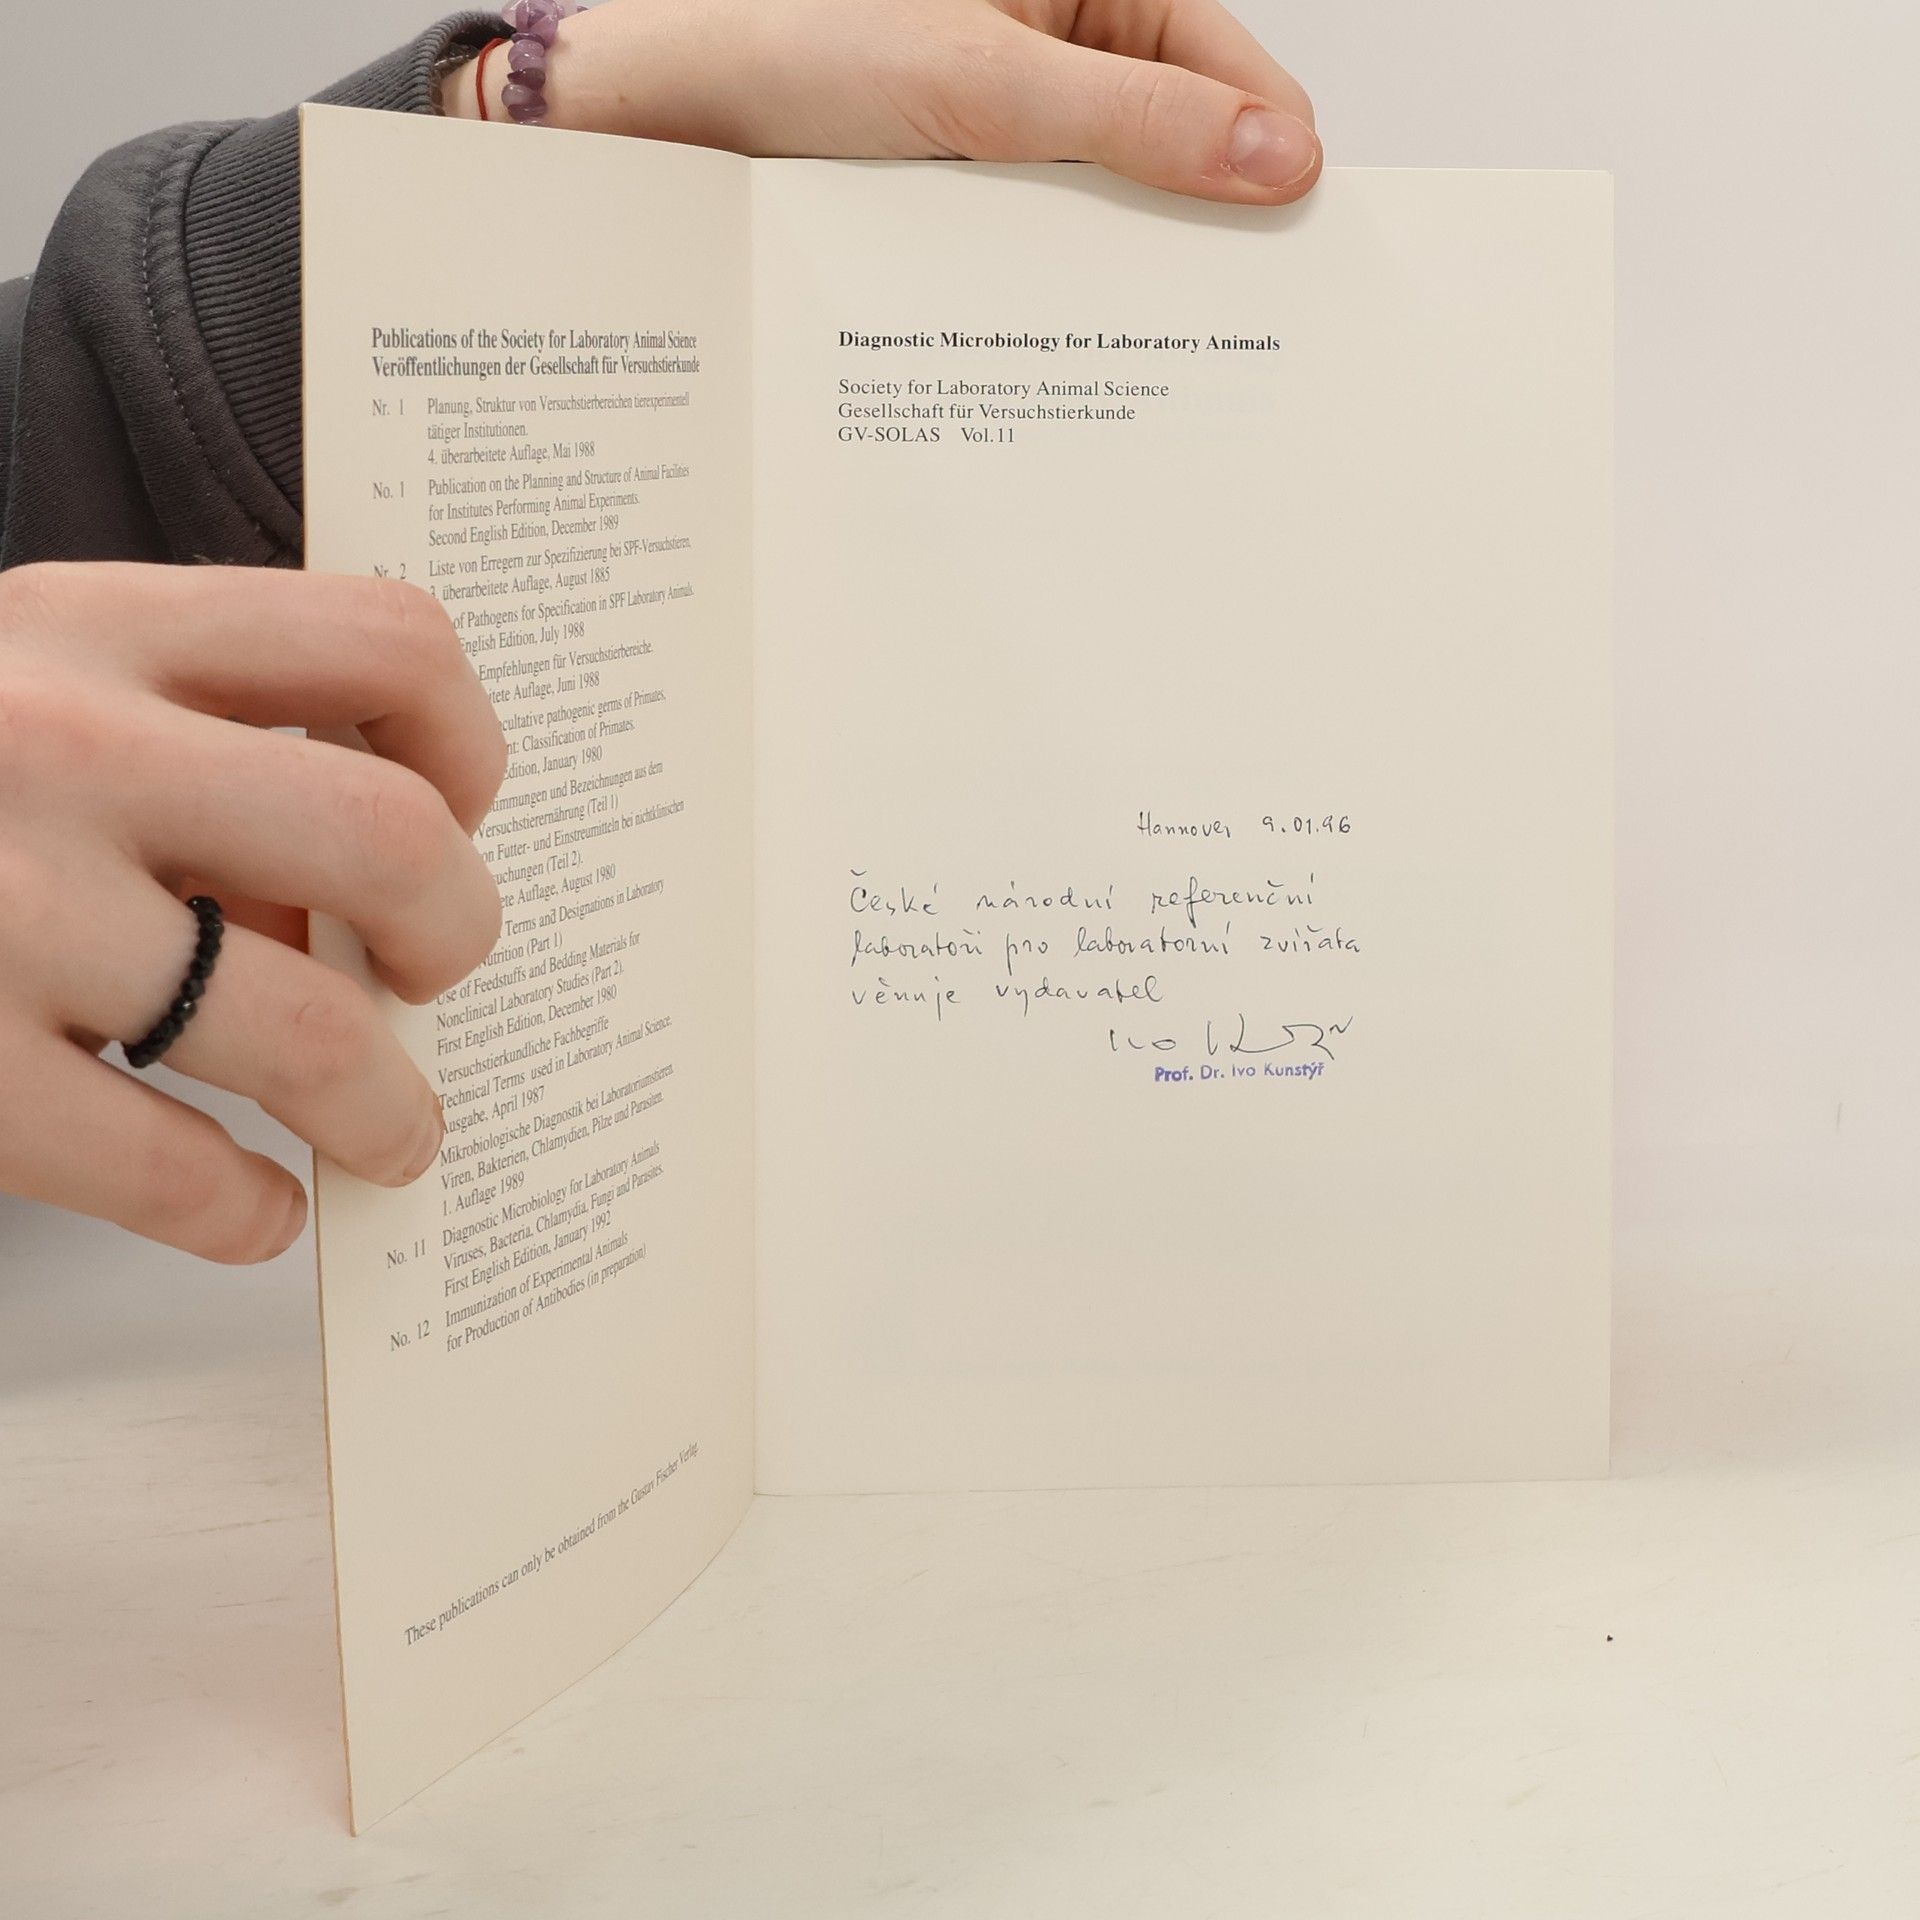 Publications of the Society for Laboratory Animal Science
Veröffentlichungen der Gesellschaft für Versuchstierkunde
Nr. 1 Planung, Struktur von Versuchstierbereichen tierexperimentell
tätiger Institutionen.
4. überarbeitete Auflage, Mai 1988
No. 1 Publication on the Planning and Structure of Animal Facilities
for Institutes Performing Animal Experiments.
Second English Edition, December 1989
Nr. 2 Liste von Erregern zur Spezifizierung bei SPF-Versuchstieren,
3. überarbeitete Auflage, August 1885
of Pathogens for Specification in SPF Laboratory Animals.
English Edition, July 1988
Empfehlungen für Versuchstierbereiche.
itete Auflage, Juni 1988
cultative pathogenic germs of Primates,
nt: Classification of Primates.
Edition, January 1980
immungen und Bezeichnungen aus dem
Versuchstierernährung (Teil 1)
on Futter- und Einstreumitteln bei nichtklinischen
suchungen (Teil 2).
ete Auflage, August 1980
Terms and Designations in Laboratory
Nutrition (Part 1)
Use of Feedstuffs and Bedding Materials for
Nonclinical Laboratory Studies (Part 2).
First English Edition, December 1980
Versuchstierkundliche Fachbegriffe
Technical Terms used in Laboratory Animal Science.
Ausgabe, April 1987
Mikrobiologische Diagnostik bei Laboratoriumstieren
Viren, Bakterien, Chlamydien, Pilze und Parasiten.
1. Auflage 1989
No. 11 Diagnostic Microbiology for Laboratory Animals
Viruses, Bacteria, Chlamydia, Fungi and Parasites.
First English Edition, January 1992
No. 12 Immunization of Experimental Animals
for Production of Antibodies (in preparation)
These publications can only be obtained from the Gustav Fischer Verlag.
Diagnostic Microbiology for Laboratory Animals
Society for Laboratory Animal Science
Gesellschaft für Versuchstierkunde
GV-SOLAS Vol. 11
Hannover 9.01.96
České národní referenční
laboratoři pro laboratorní zvířata
věnuje vydavatel
Ivo
Prof. Dr. Ivo Kunstýř